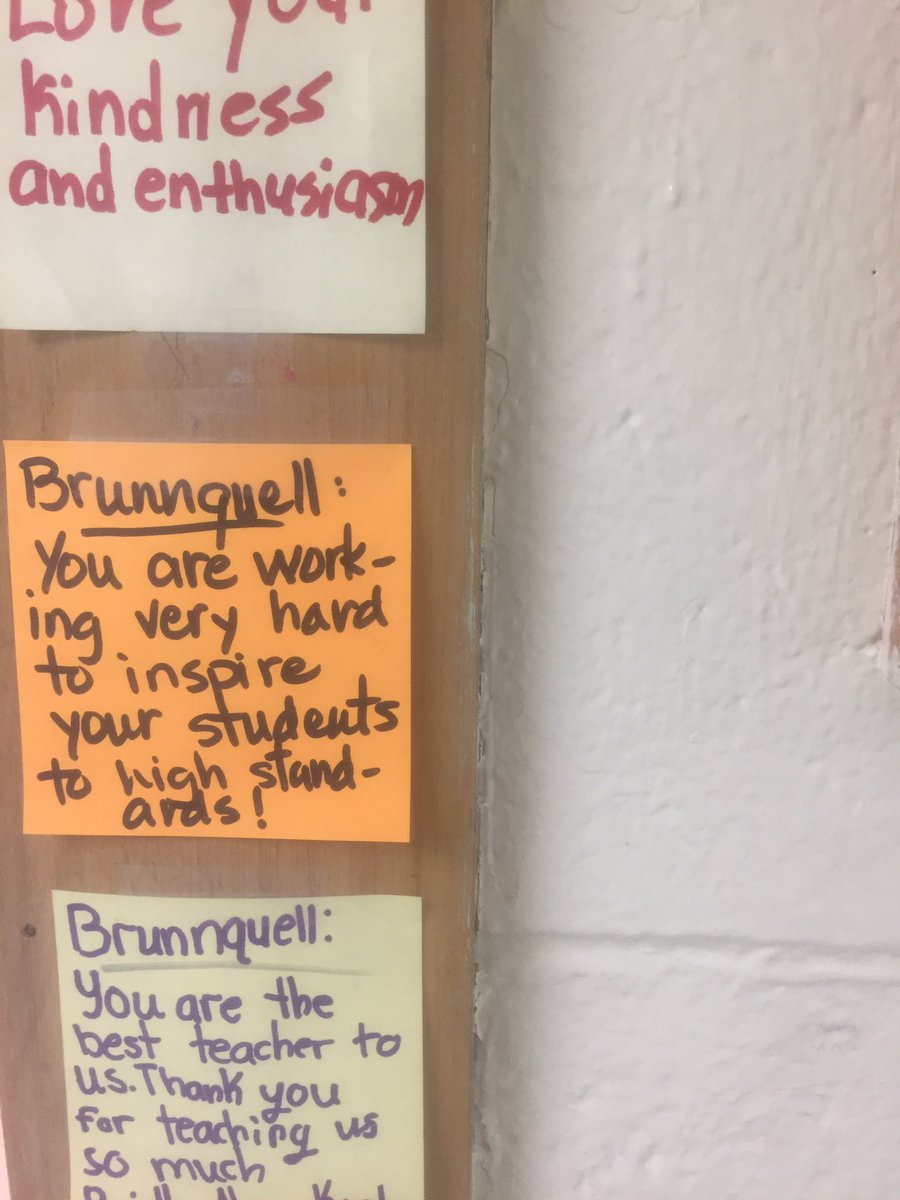 Love your
kindness
and enthusiasm
Brunnquell:
You are work-
ing very hard
to inspire
your students
to high stand-
ards!
Brunnquell:
You are the
best teacher to
us. Thank you
for teaching us
so much